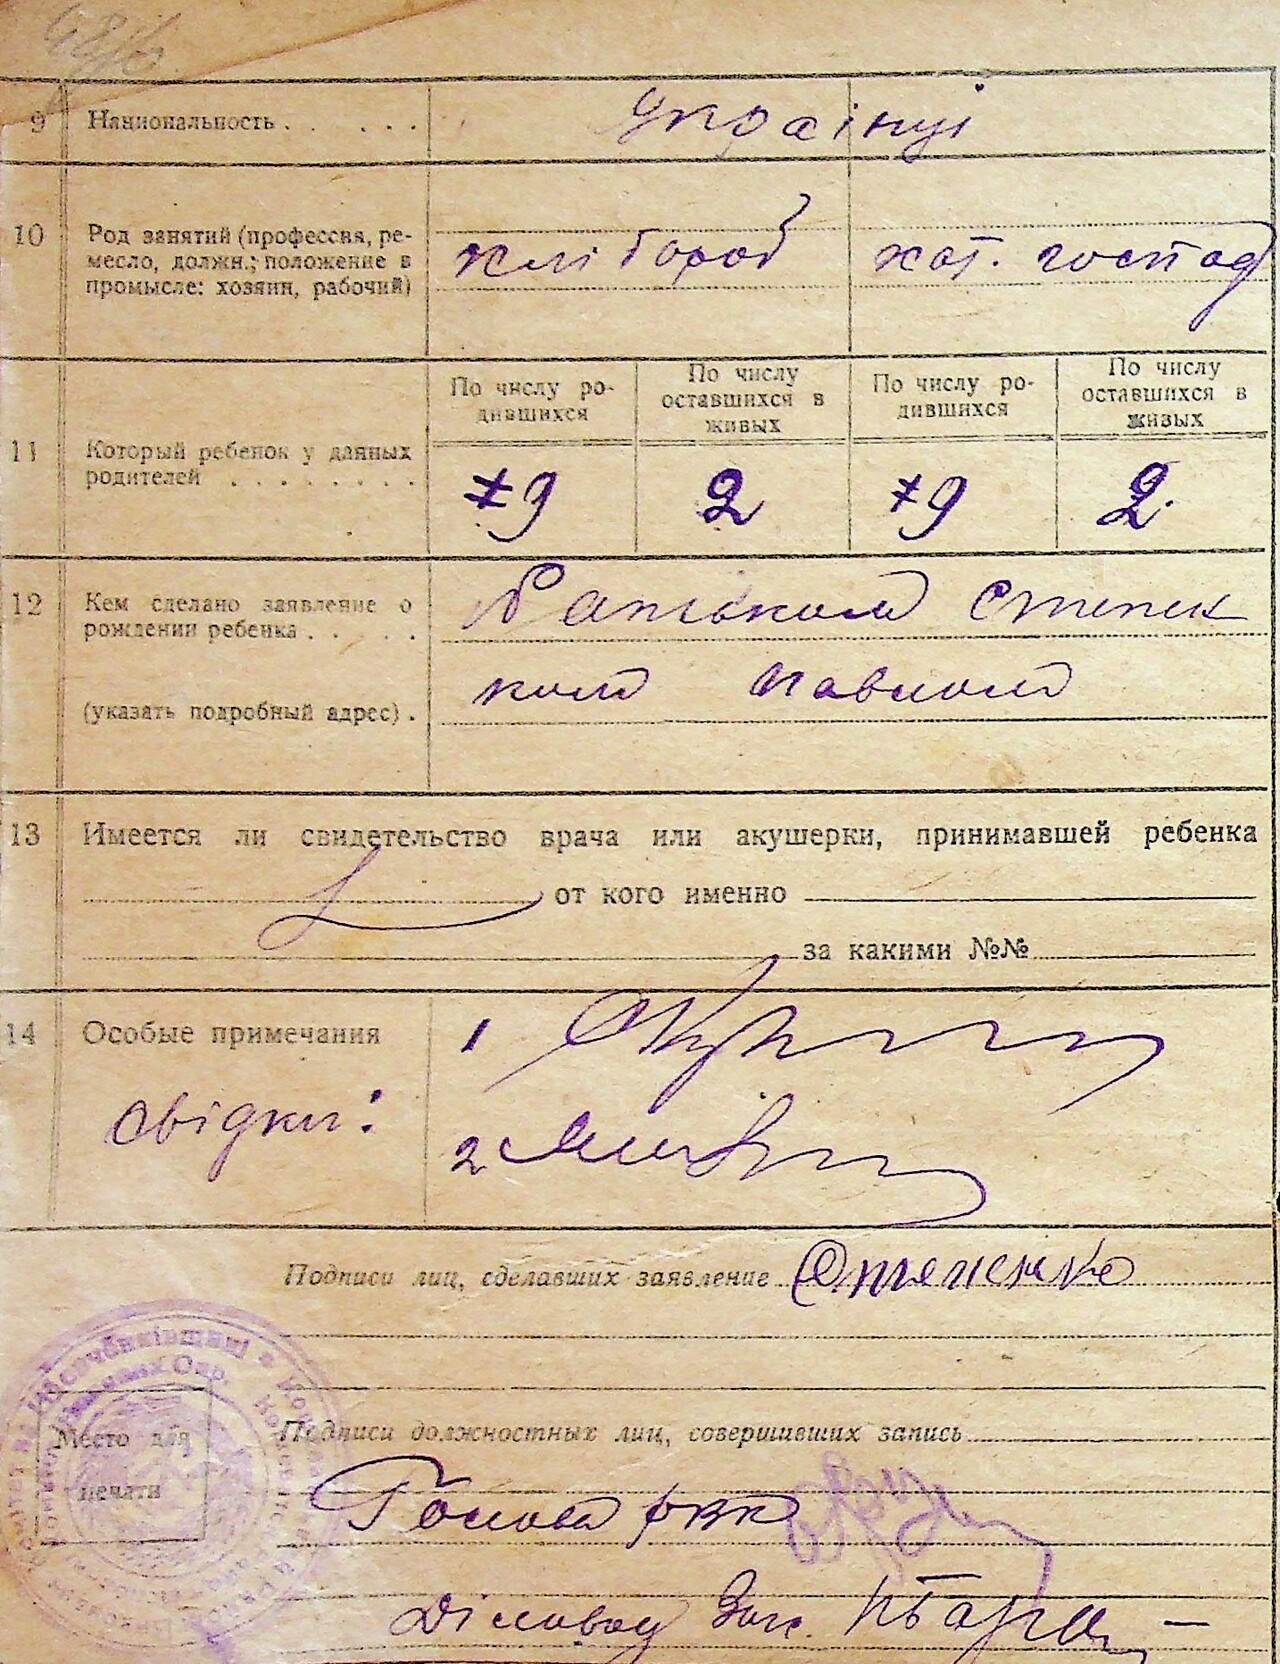 9 Национальность . . . . . Українці
10 Род занятий (профессия, ре-
месло, должн.; положение в
промысле: хозяин, рабочий)
хлібороб хат. господ
11 Который ребенок у данных
родителей . . . . . . . .
По числу ро-
дившихся
По числу
оставшихся в
живых
По числу ро-
дившихся
По числу
оставшихся в
живых
9 2 9 2
12 Кем сделано заявление о
рождении ребенка . . . .
Батьком Степен
ком Павлом
(указать подробный адрес) .
13 Имеется ли свидетельство врача или акушерки, принимавшей ребенка
от кого именно
за какими №№
14 Особые примечания
Свідки:
1
2
Подписи лиц, сделавших заявление Степенко
Подписи должностных лиц, совершивших запись
Место для
печати
Голова РВК
Діловод